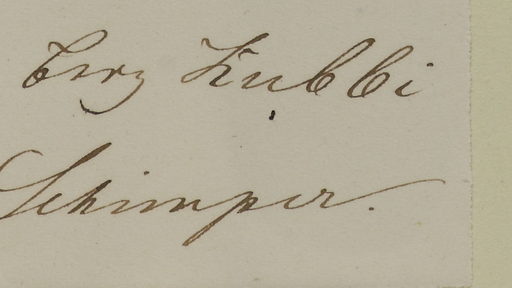 Berg Kubbi
Schimper.